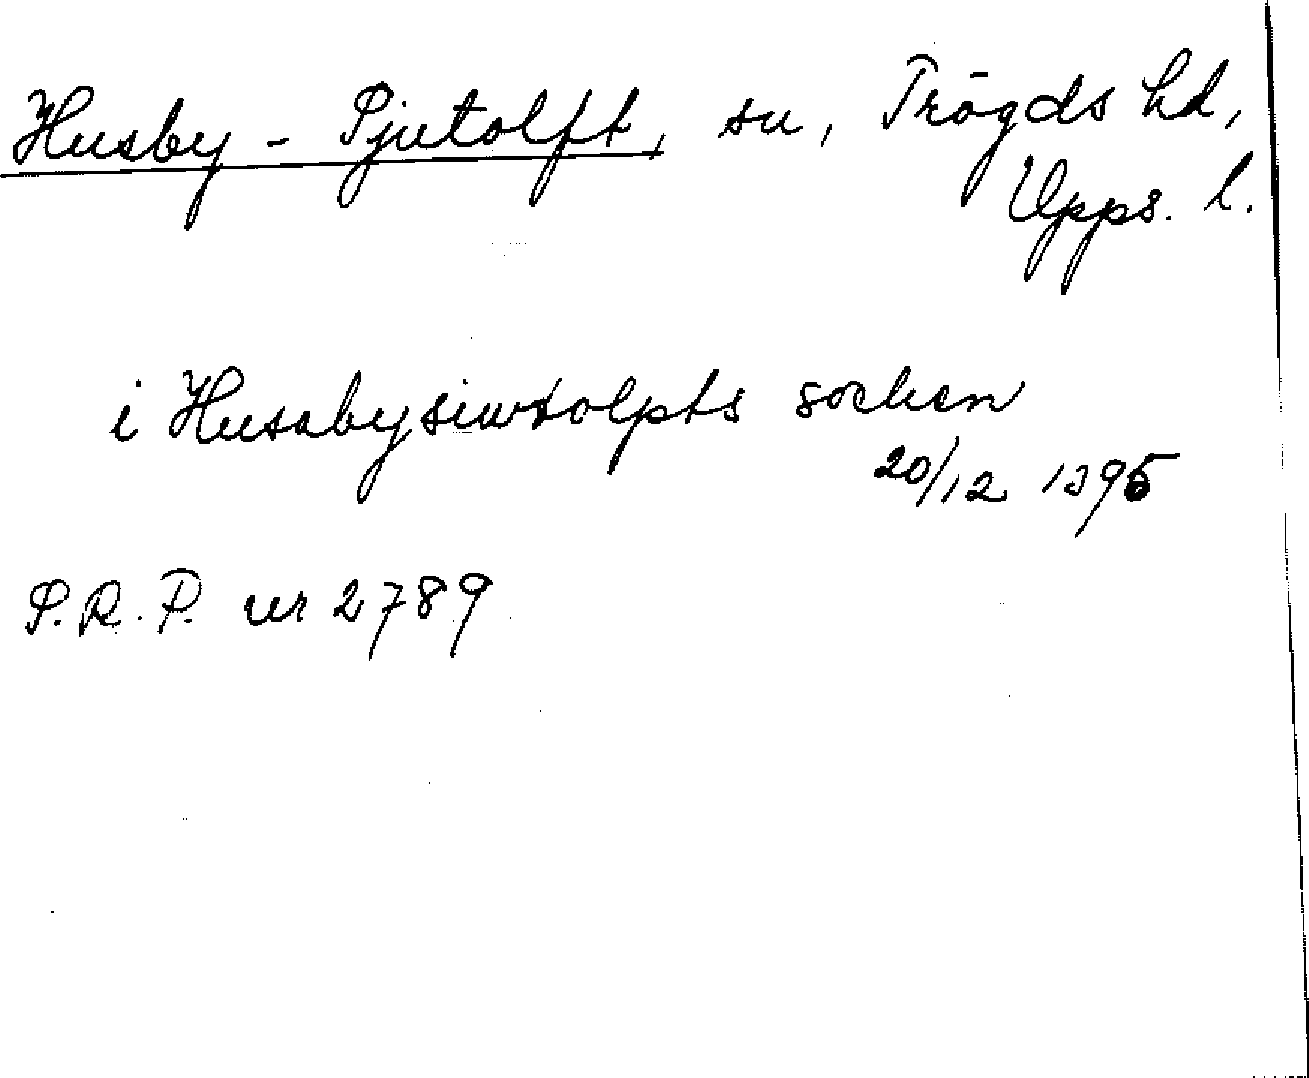 Husby - Sjutolft, sn, Trögds hd,
Upps. l.
i Husabysiwtolpts sochen
20/12 1395
S.R.P. nr 2789